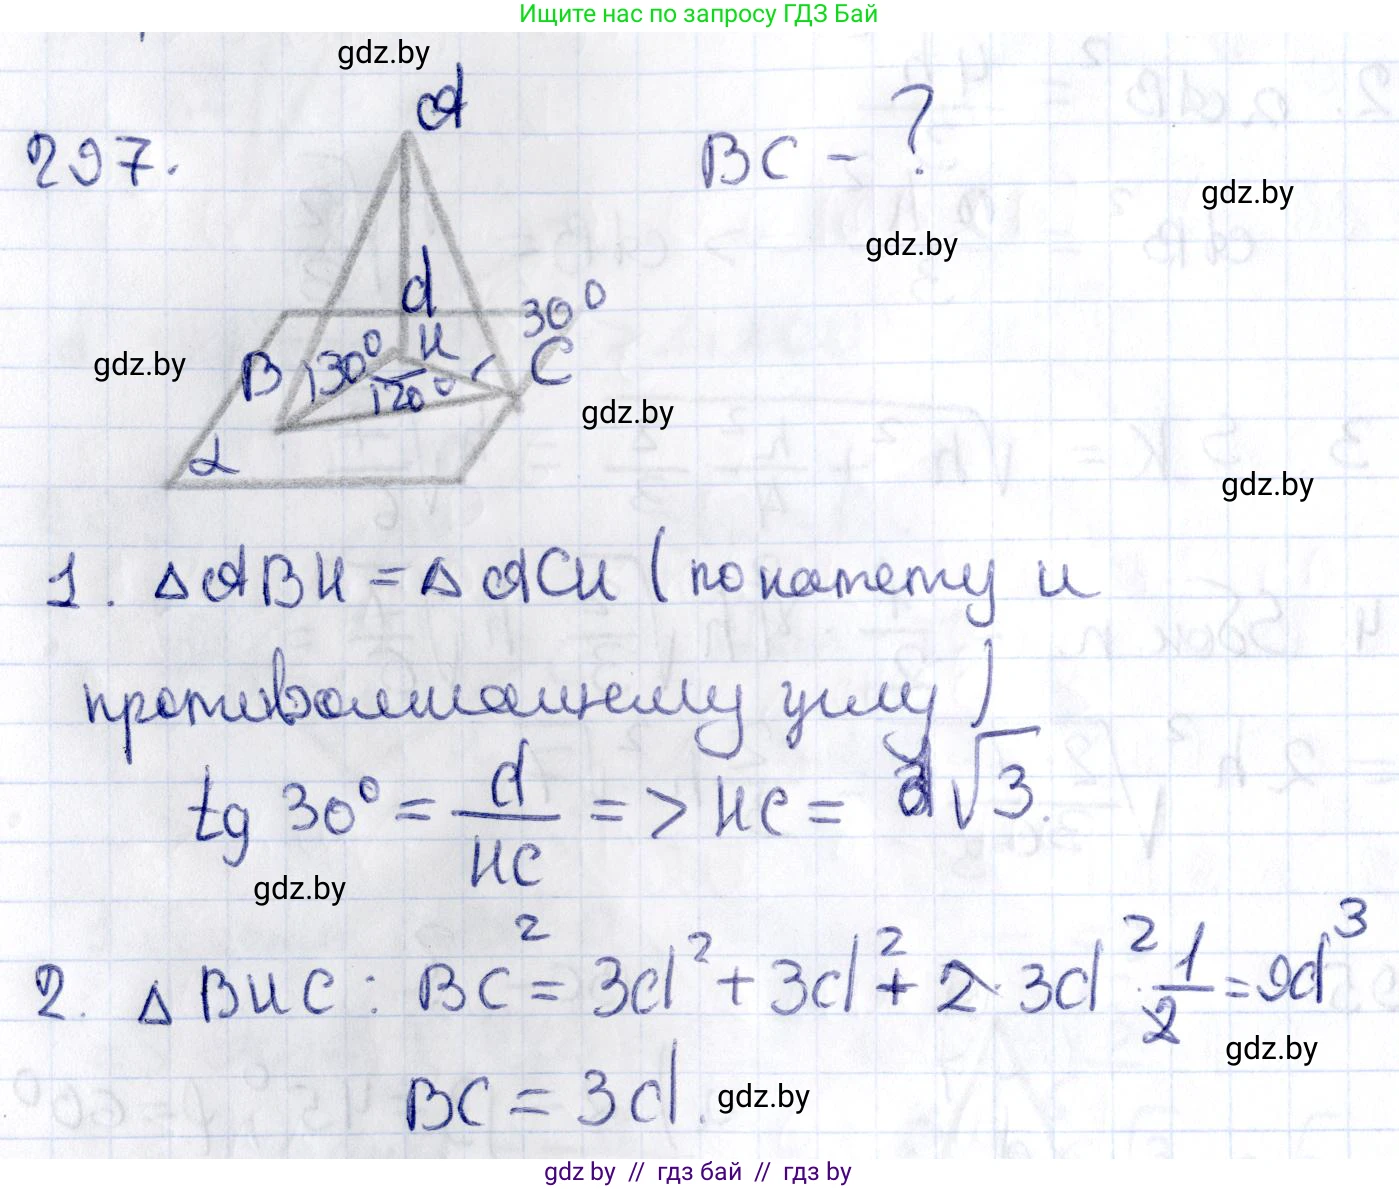 Ищите нас по запросу ГДЗ Бай
gdz.by
297.
A
BC - ?
gdz.by
gdz.by
d
30°
gdz.by
B
30°
H
C
120°
gdz.by
α
gdz.by
1. △ABH = △ACH (по катету и
противолежащему углу)
tg 30° = d/HC => HC = d√3.
gdz.by
2. △BHC: BC² = 3d² + 3d² + 2·3d²·1/2 = 9d³
gdz.by
BC = 3d.
gdz.by
gdz.by // гдз бай // гдз by